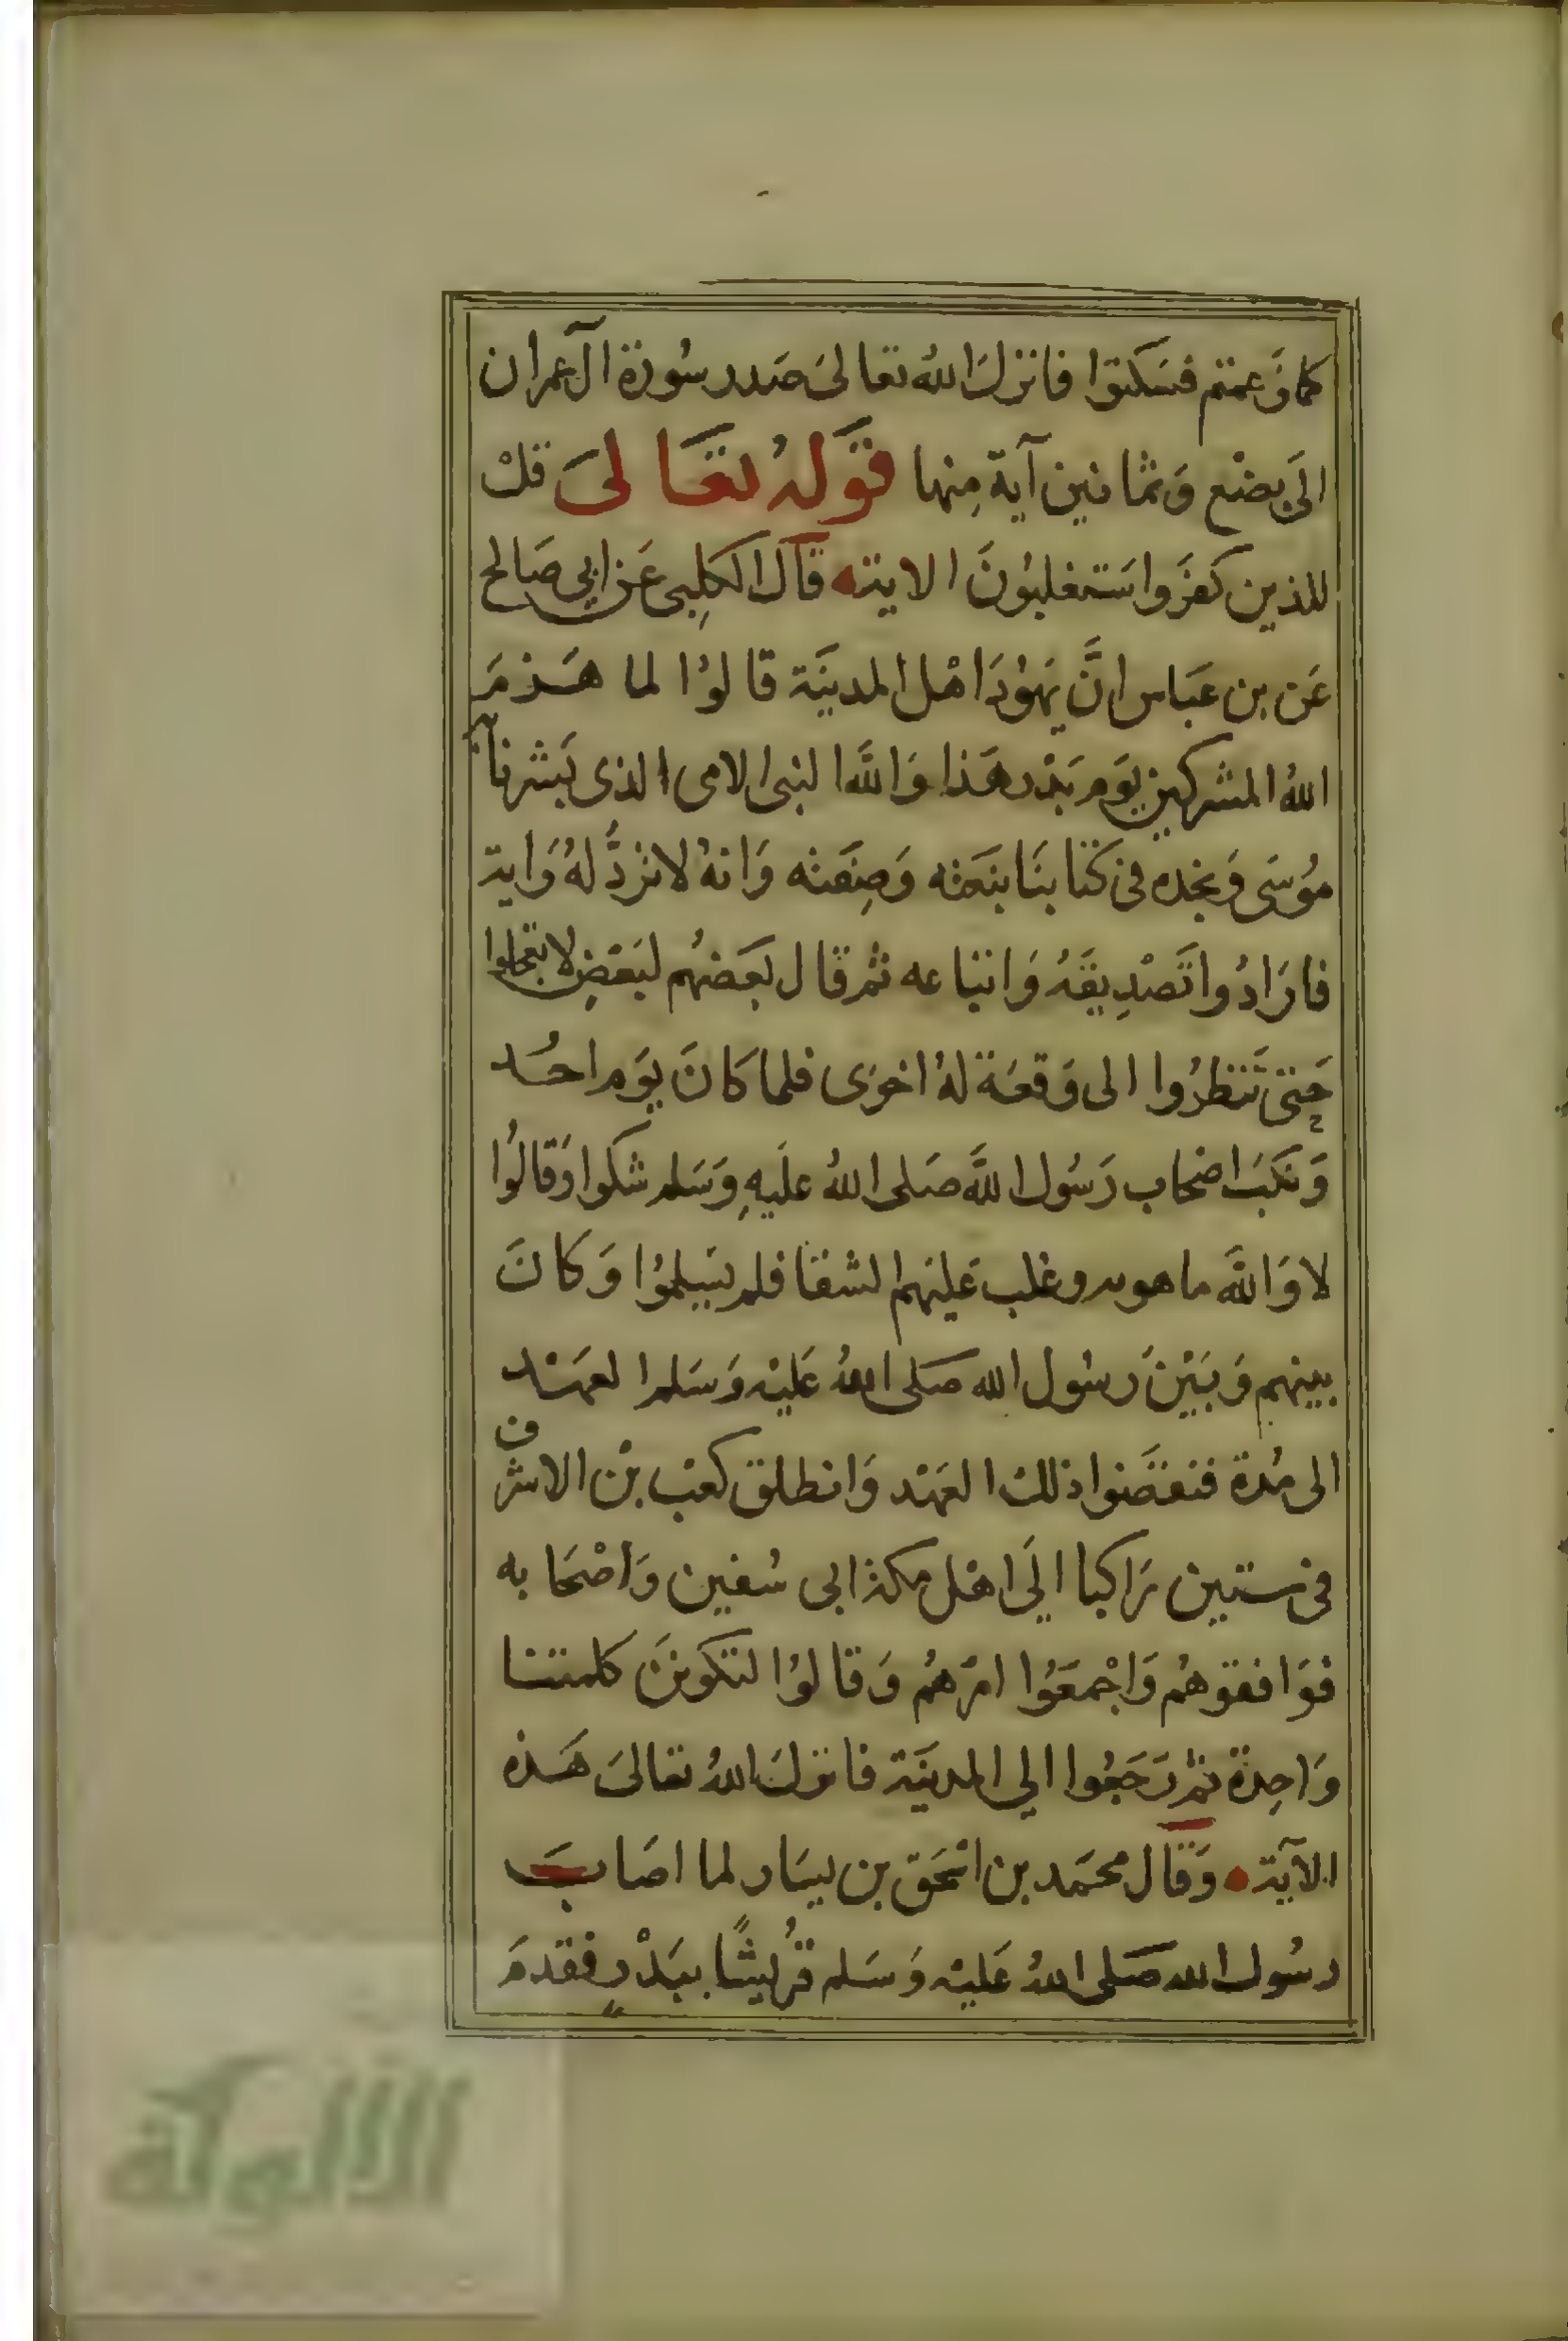 كما زعمتم فسكتوا فانزل الله تعالى صدر سورة آل عمران
الى بضع وثمانين آية منها قوله تعالى قل
للذين كفروا ستغلبون الاية قال الكلبى عن ابي صالح
عن بن عباس ان يهود اهل المدينة قالوا لما هزم
الله المشركين يوم بدر هذا والله النبى الامى الذى بشرنا به
موسى ونجده فى كتابنا بنعته وصفته وانه لا ترد له راية
فارادوا تصديقه واتباعه ثم قال بعضهم لبعض لا تعجلوا
حتى تنظروا الى وقعة له اخرى فلما كان يوم احد
ونكب اصحاب رسول الله صلى الله عليه وسلم شكوا وقالوا
لا والله ما هو به وغلب عليهم الشقا فلم يسلموا وكان
بينهم وبين رسول الله صلى الله عليه وسلم العهد
الى مدة فنقضوا ذلك العهد وانطلق كعب بن الاشرف
فى ستين راكبا الى اهل مكة ابى سفين واصحابه
فوافقوهم واجمعوا امرهم وقالوا لتكونن كلمتنا
واحدة ثم رجعوا الي المدينة فانزل الله تعالى هذه
الآية وقال محمد بن اسحق بن يسار لما اصاب
رسول الله صلى الله عليه وسلم قريشا ببدر فقدم
الألوكة